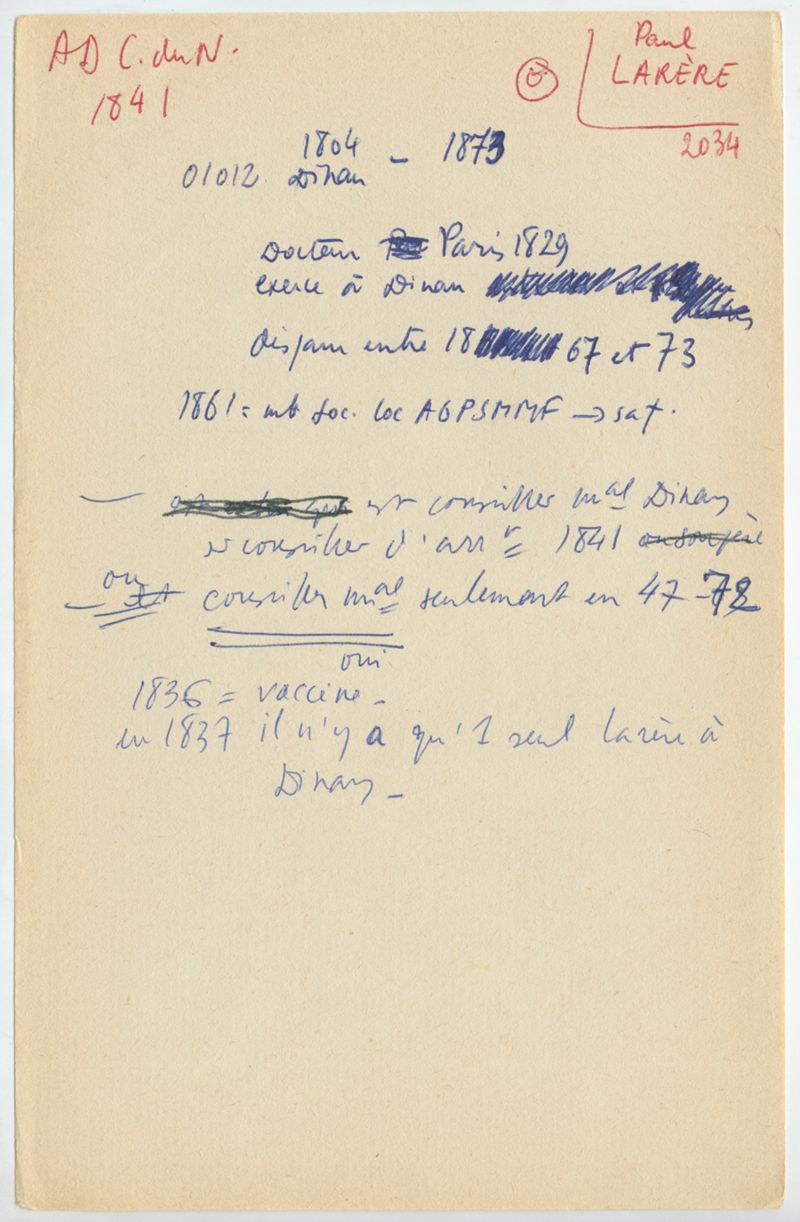 AD C. du N.
1841
Paul
LARÈRE
2034
1804 – 1873
01012 Dinan
Docteur Paris 1829
exerce à Dinan
disparu entre 18 67 et 73
1861 = mb Soc. loc AGPSMMF → sat.
— est conseiller mal Dinan
et conseiller d'arrt 1841 ou son père
— ou et conseiller mal seulement en 47 - 72
oui
1836 = vaccine –
en 1837 il n'y a qu'1 seul Larère à
Dinan –